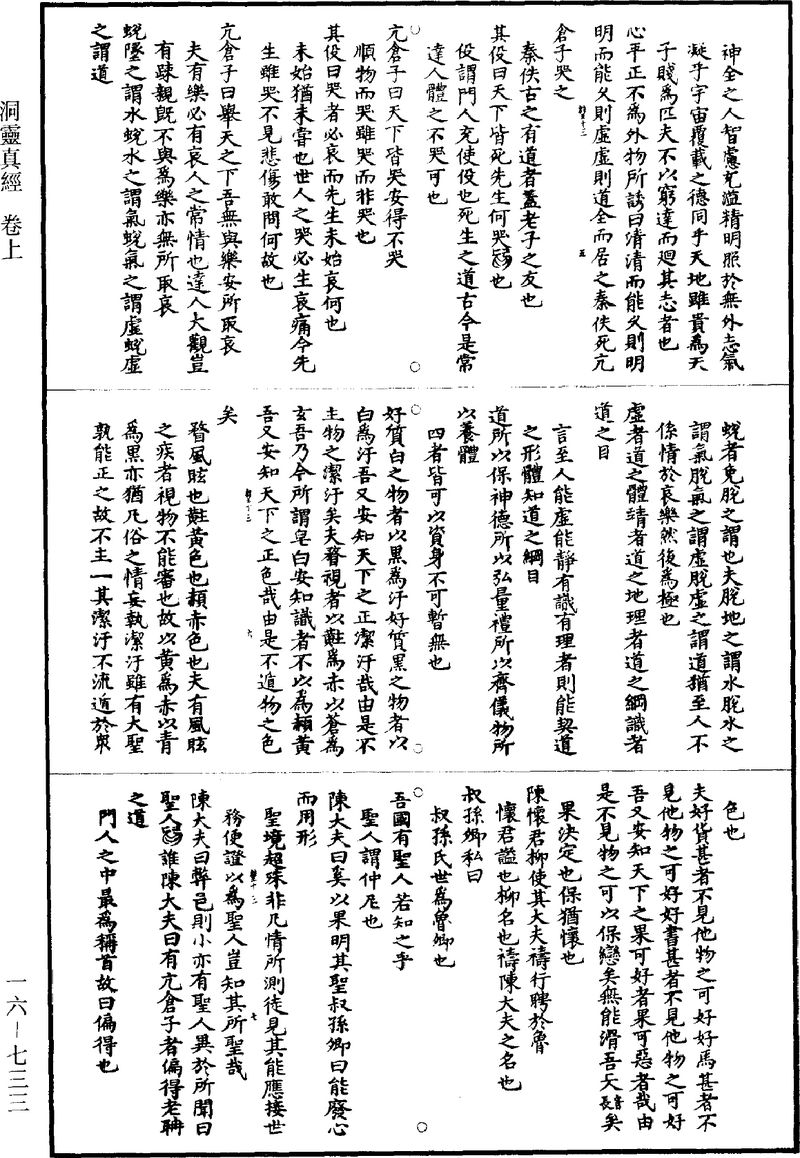 洞靈真經　卷上
一六－七三三
神全之人智慮充溢精明照於無外志氣
凝乎宇宙覆載之德同乎天地雖貴為天
子賤為匹夫不以窮達而迴其志者也
心平正不為外物所誘曰清清而能久則明
明而能久則虛虛則道全而居之秦佚死亢
倉子哭之
五
秦佚古之有道者蓋老子之友也
其役曰天下皆死先生何哭也
役謂門人充使役也死生之道古今是常
達人體之不哭可也
亢倉子曰天下皆哭安得不哭
順物而哭雖哭而非哭也
其役曰哭者必哀而先生未始哀何也
未始猶未嘗也世人之哭必生哀痛今先
生雖哭不見悲傷敢問何故也
亢倉子曰舉天之下吾無與樂安所取哀
夫有樂必有哀人之常情也達人大觀豈
有踈親既不與為樂亦無所取哀
蛻墬之謂水蛻水之謂氣蛻氣之謂虛蛻虛
之謂道
蛻者免脫之謂也夫脫地之謂水脫水之
謂氣脫氣之謂虛脫虛之謂道猶至人不
係情於哀樂然後為極也
虛者道之體靖者道之地理者道之綱識者
道之目
言至人能虛能靜有識有理者則能契道
之形體知道之綱目
道所以保神德所以弘量禮所以齊儀物所
以養體
四者皆可以資身不可暫無也
好質白之物者以黑為汙好質黑之物者以
白為汙吾又安知天下之正潔汙哉由是不
主物之潔汙矣夫瞀視者以黈為赤以蒼為
玄吾乃今所謂皂白安知識者不以為頳黃
吾又安知天下之正色哉由是不遁物之色
矣
瞀風眩也黈黃色也頳赤色也夫有風眩
之疾者視物不能審也故以黃為赤以青
為黑亦猶凡俗之情妄執潔汙雖有大聖
孰能正之故不主一其潔汙不流遁於衆
色也
夫好貨甚者不見他物之可好好馬甚者不
見他物之可好好書甚者不見他物之可好
吾又安知天下之果可好者果可惡者哉由
是不見物之可以保戀矣無能滑吾長矣
果決定也保猶懷也
陳懷君柳使其大夫禱行聘於魯
懷君謚也柳名也禱陳大夫之名也
叔孫卿私曰
叔孫氏世為魯卿也
吾國有聖人若知之乎
聖人謂仲尼也
陳大夫曰奚以果明其聖叔孫卿曰能廢心
而用形
七
聖境超殊非凡情所測徒見其能應接世
務便證以為聖人豈知其所聖哉
陳大夫曰弊邑則小亦有聖人異於所聞曰
聖人誰陳大夫曰有亢倉子者偏得老聃
之道
門人之中最為稱首故曰偏得也